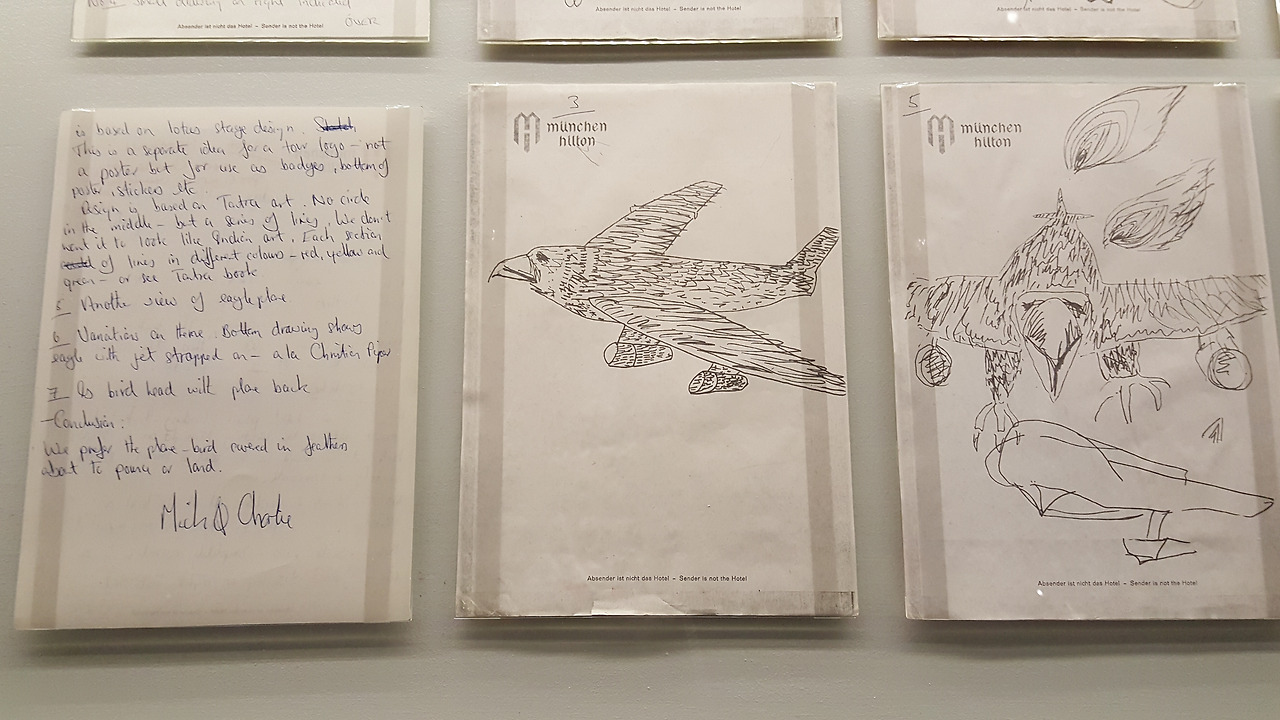 Note small drawing on right indicated
OVER
Absender ist nicht das Hotel – Sender is not the Hotel
Absender ist nicht das Hotel – Sender is not the Hotel
Absender ist nicht das Hotel – Sender is not the Hotel
is based on lotus stage design. Sketch
This is a separate idea for a tour logo – not
a poster but for use as badges, bottom of
poster, stickers etc.
Design is based on Tantra art. No circle
in the middle – but a series of lines. We don't
want it to look like Indian art. Each section
of lines in different colours – red, yellow and
green – or see Tantra book
5 Another view of eagle plane
6 Variations on theme. Bottom drawing shows
eagle with jet strapped on – a la Christian Piper
7 As bird head with plane back
– Conclusion:
We prefer the plane – bird covered in feathers
about to pounce or land.
Mick & Charlie
3
münchen
hilton
Absender ist nicht das Hotel – Sender is not the Hotel
5
münchen
hilton
Absender ist nicht das Hotel – Sender is not the Hotel